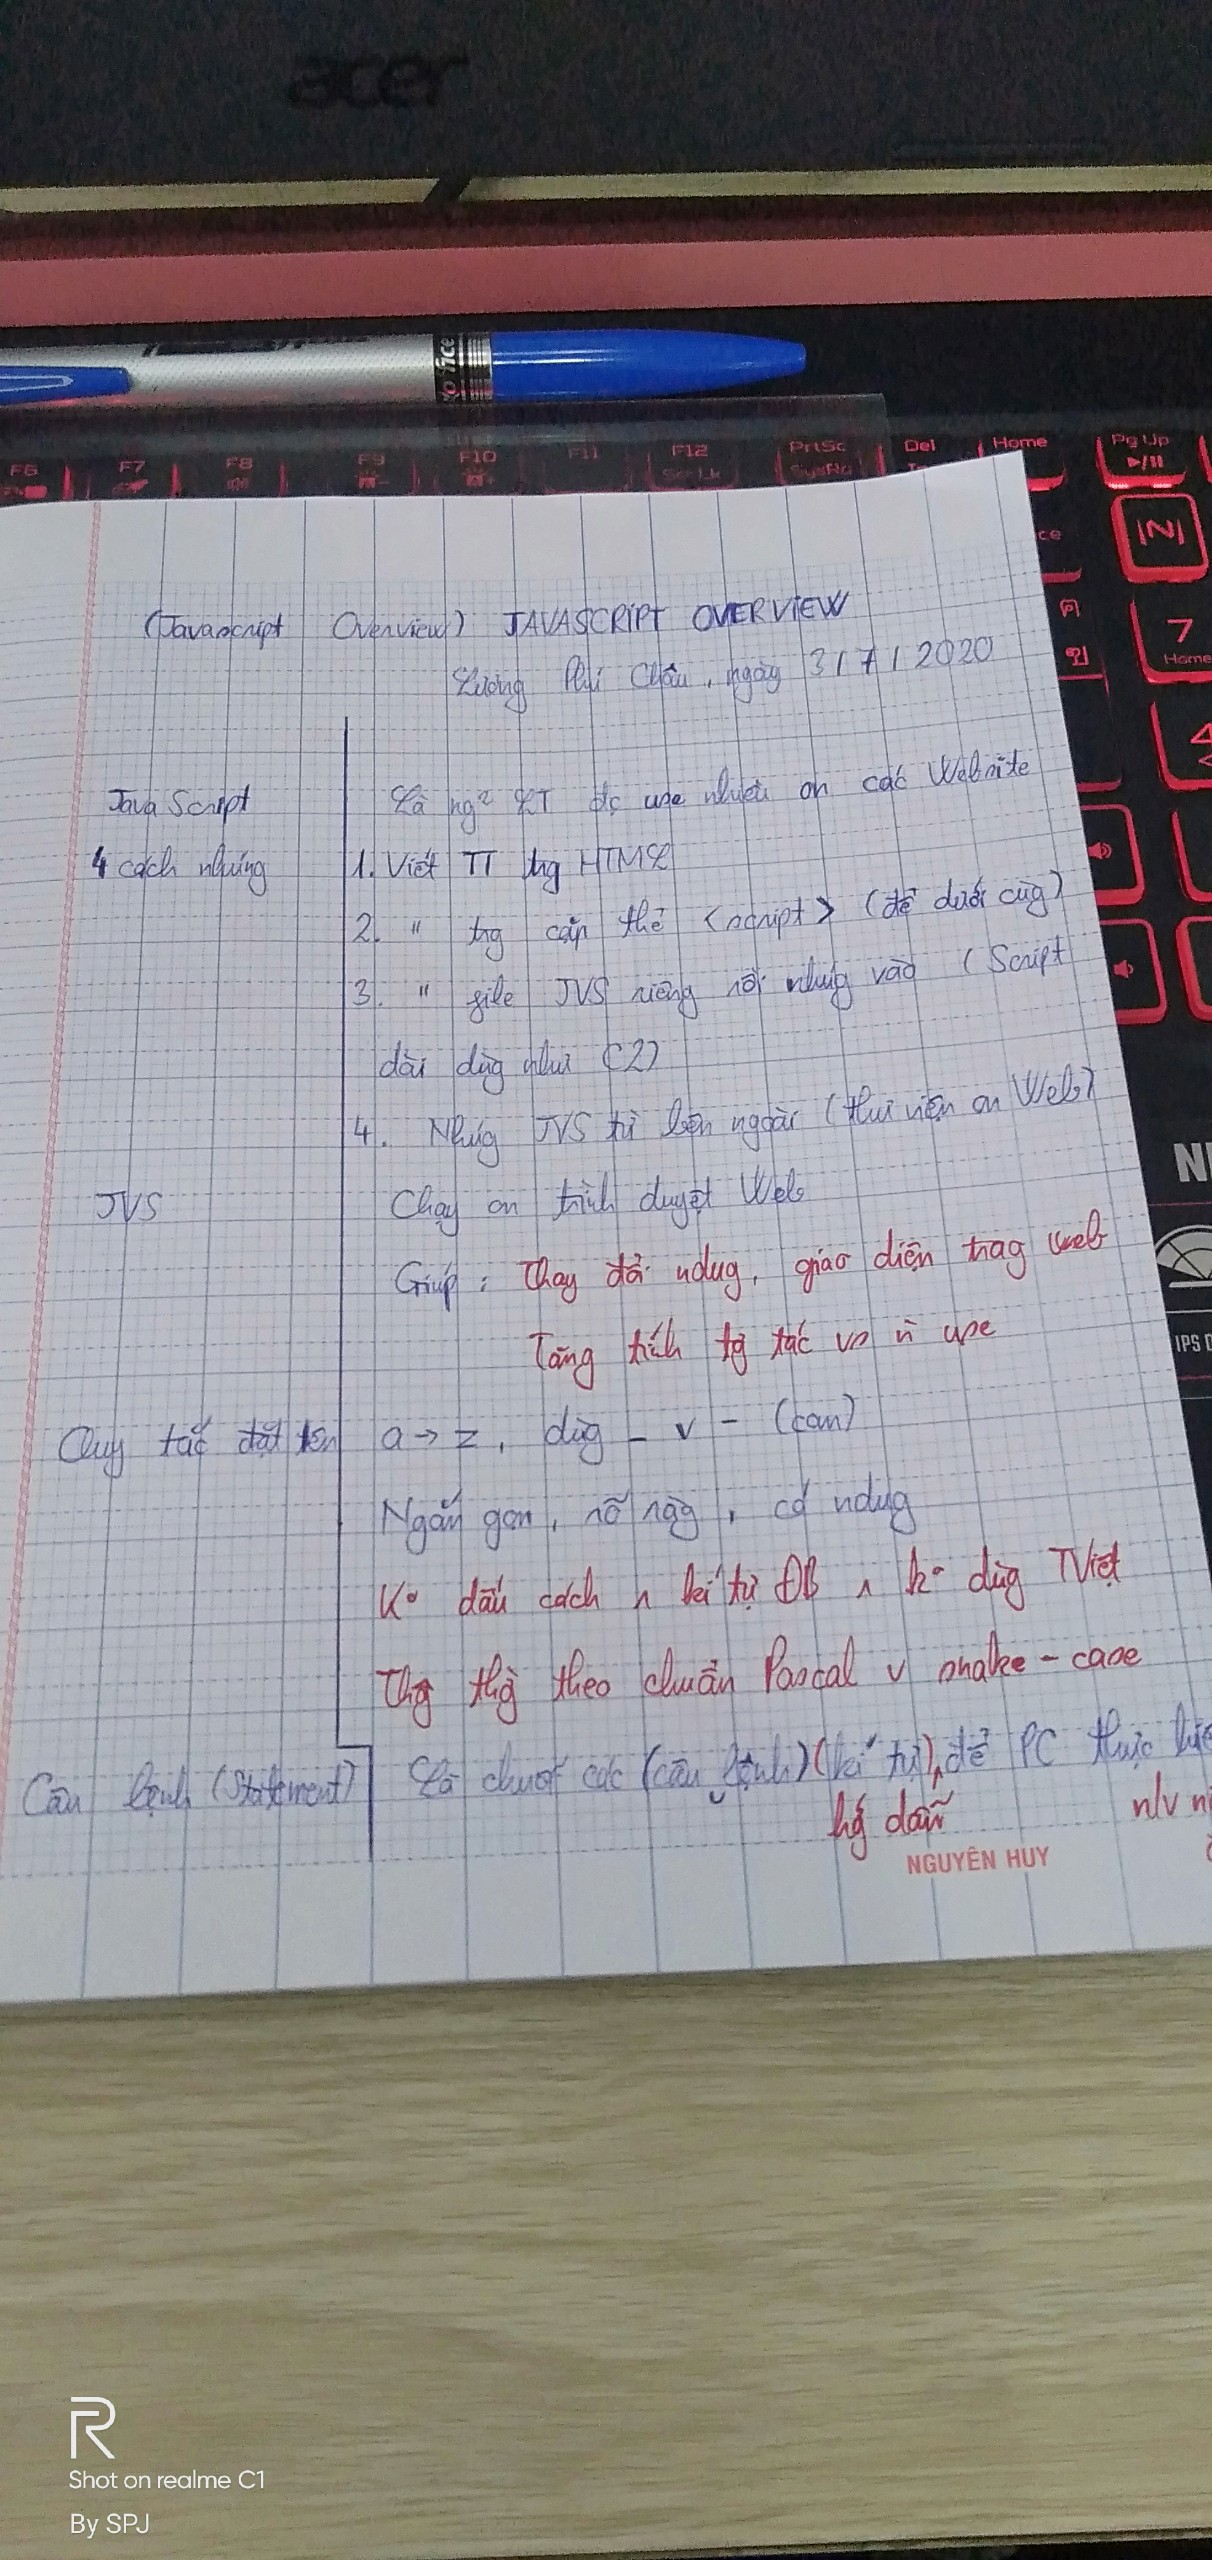 acer
F6 F7 F8 F9 F10 F11 F12 PrtSc Del Home Pg Up
SysRq
7
Home
4
(Javascript Overview) JAVASCRIPT OVERVIEW
Lương Phí Châu, ngày 3/7/2020
Java Script Là ng² LT đc use nhiều on các Website
4 cách nhúng 1. Viết TT trg HTML
2. " trg cặp thẻ <script> (để dưới cùg)
3. " file JVS riêng rồi nhúg vào (Script
dài dùg như C2)
4. Nhúg JVS từ bên ngoài (thư viện on Web)
JVS Chạy on trình duyệt Web
Giúp : Thay đổi ndug, giao diện trag web
Tăng tính tg tác vs n use
Quy tắc đặt tên a → z, dùg _ v - (can)
Ngắn gọn, rõ ràg, có ndug
K° dấu cách ʌ kí tự ĐB ʌ k° dùg TViệt
Thg thg theo chuẩn Pascal v snake-case
Câu lệnh (Statement) Là chuỗi các (câu lệnh) (kí tự) để PC thực
hg dẫn n/v
NGUYÊN HUY
IPS
Shot on realme C1
By SPJ